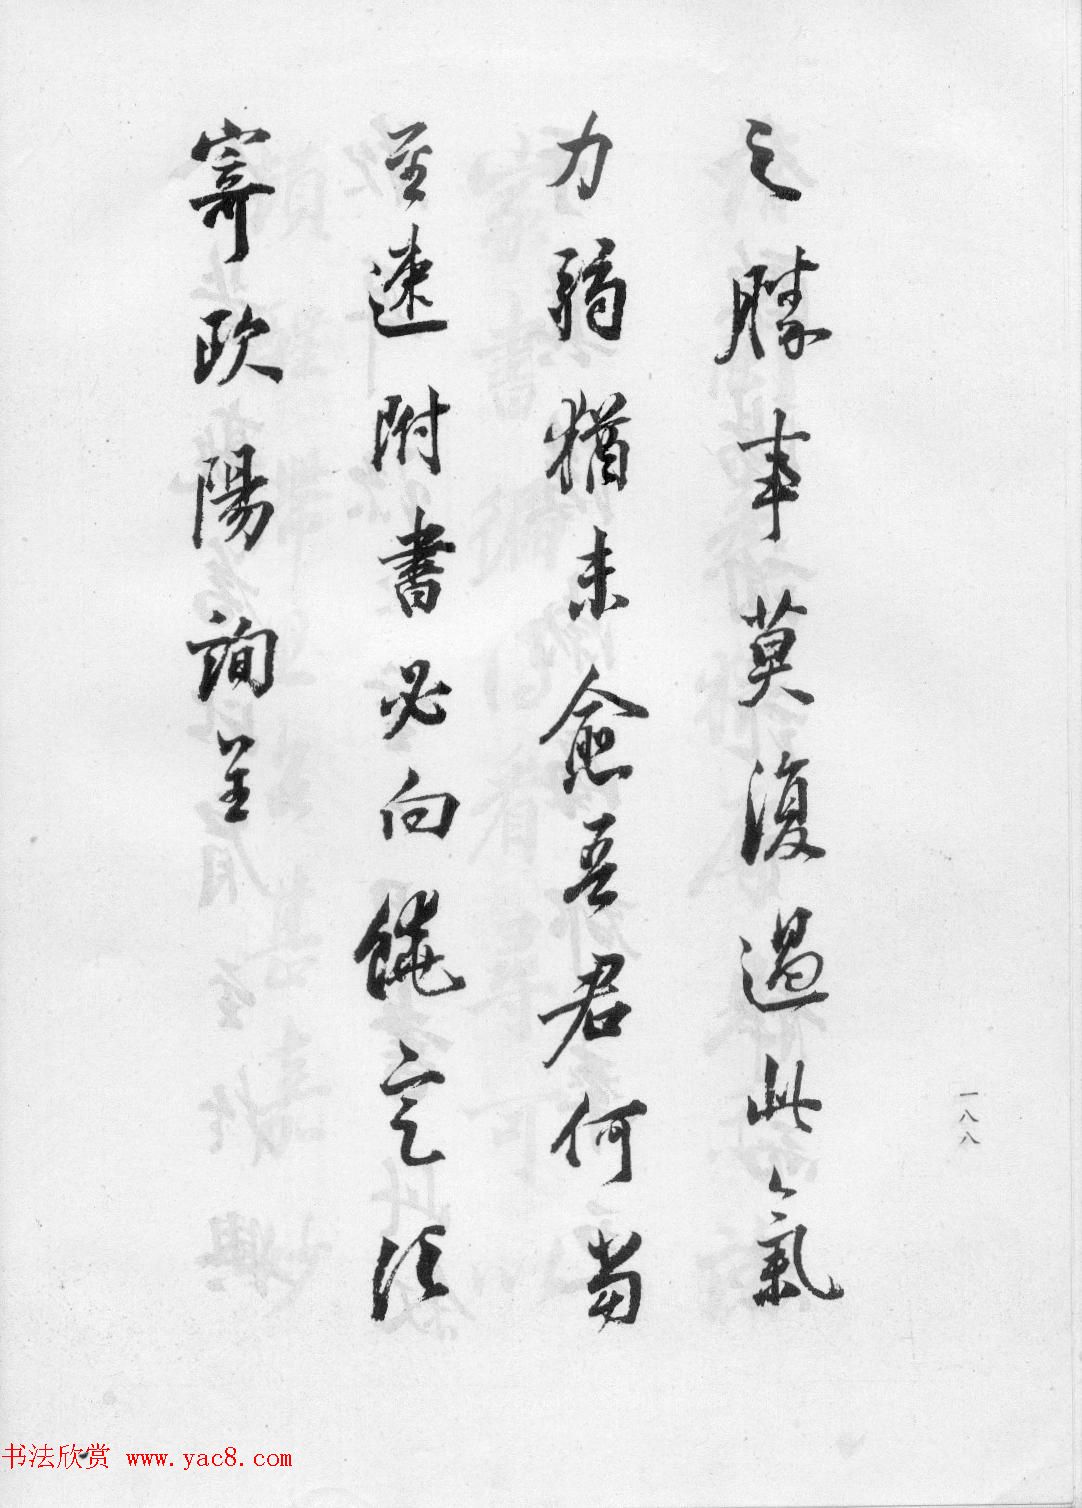 之勝事莫復過此氣
力弱猶未愈吾君何當
至速附書必向饒定須
寄歐陽詢呈
一八八
书法欣赏 www.yac8.com